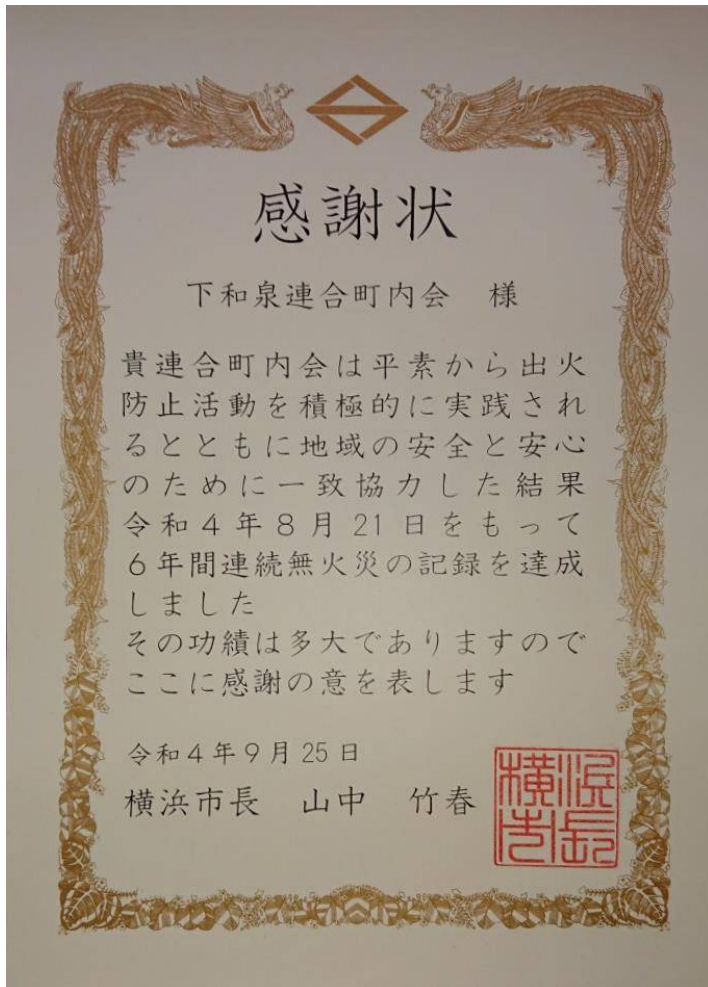 感謝状
下和泉連合町内会 様
貴連合町内会は平素から出火
防止活動を積極的に実践され
るとともに地域の安全と安心
のために一致協力した結果
令和4年8月21日をもって
6年間連続無火災の記録を達成
しました
その功績は多大でありますので
ここに感謝の意を表します
令和4年9月25日
横浜市長 山中 竹春
横浜市長